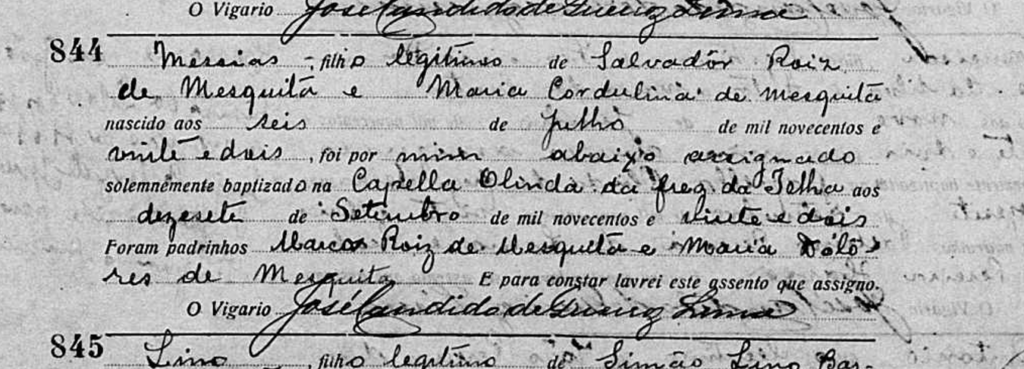 O Vigario José Candido de Queiroz Lima
844 Messias, filho legitimo de Salvadôr Roiz
de Mesquita e Maria Cordulina de Mesquita
nascido aos seis de Julho de mil novecentos e
vinte e dois, foi por mim abaixo assignado
solemnemente baptizado na Capella Olinda da freg. da Telha aos
dezesete de Setembro de mil novecentos e vinte e dois
Foram padrinhos Marcos Roiz de Mesquita e Maria Dolô
res de Mesquita E para constar lavrei este assento que assigno.
O Vigario José Candido de Queiroz Lima
845 Lino, filho legitimo de Simão Lino Bar-